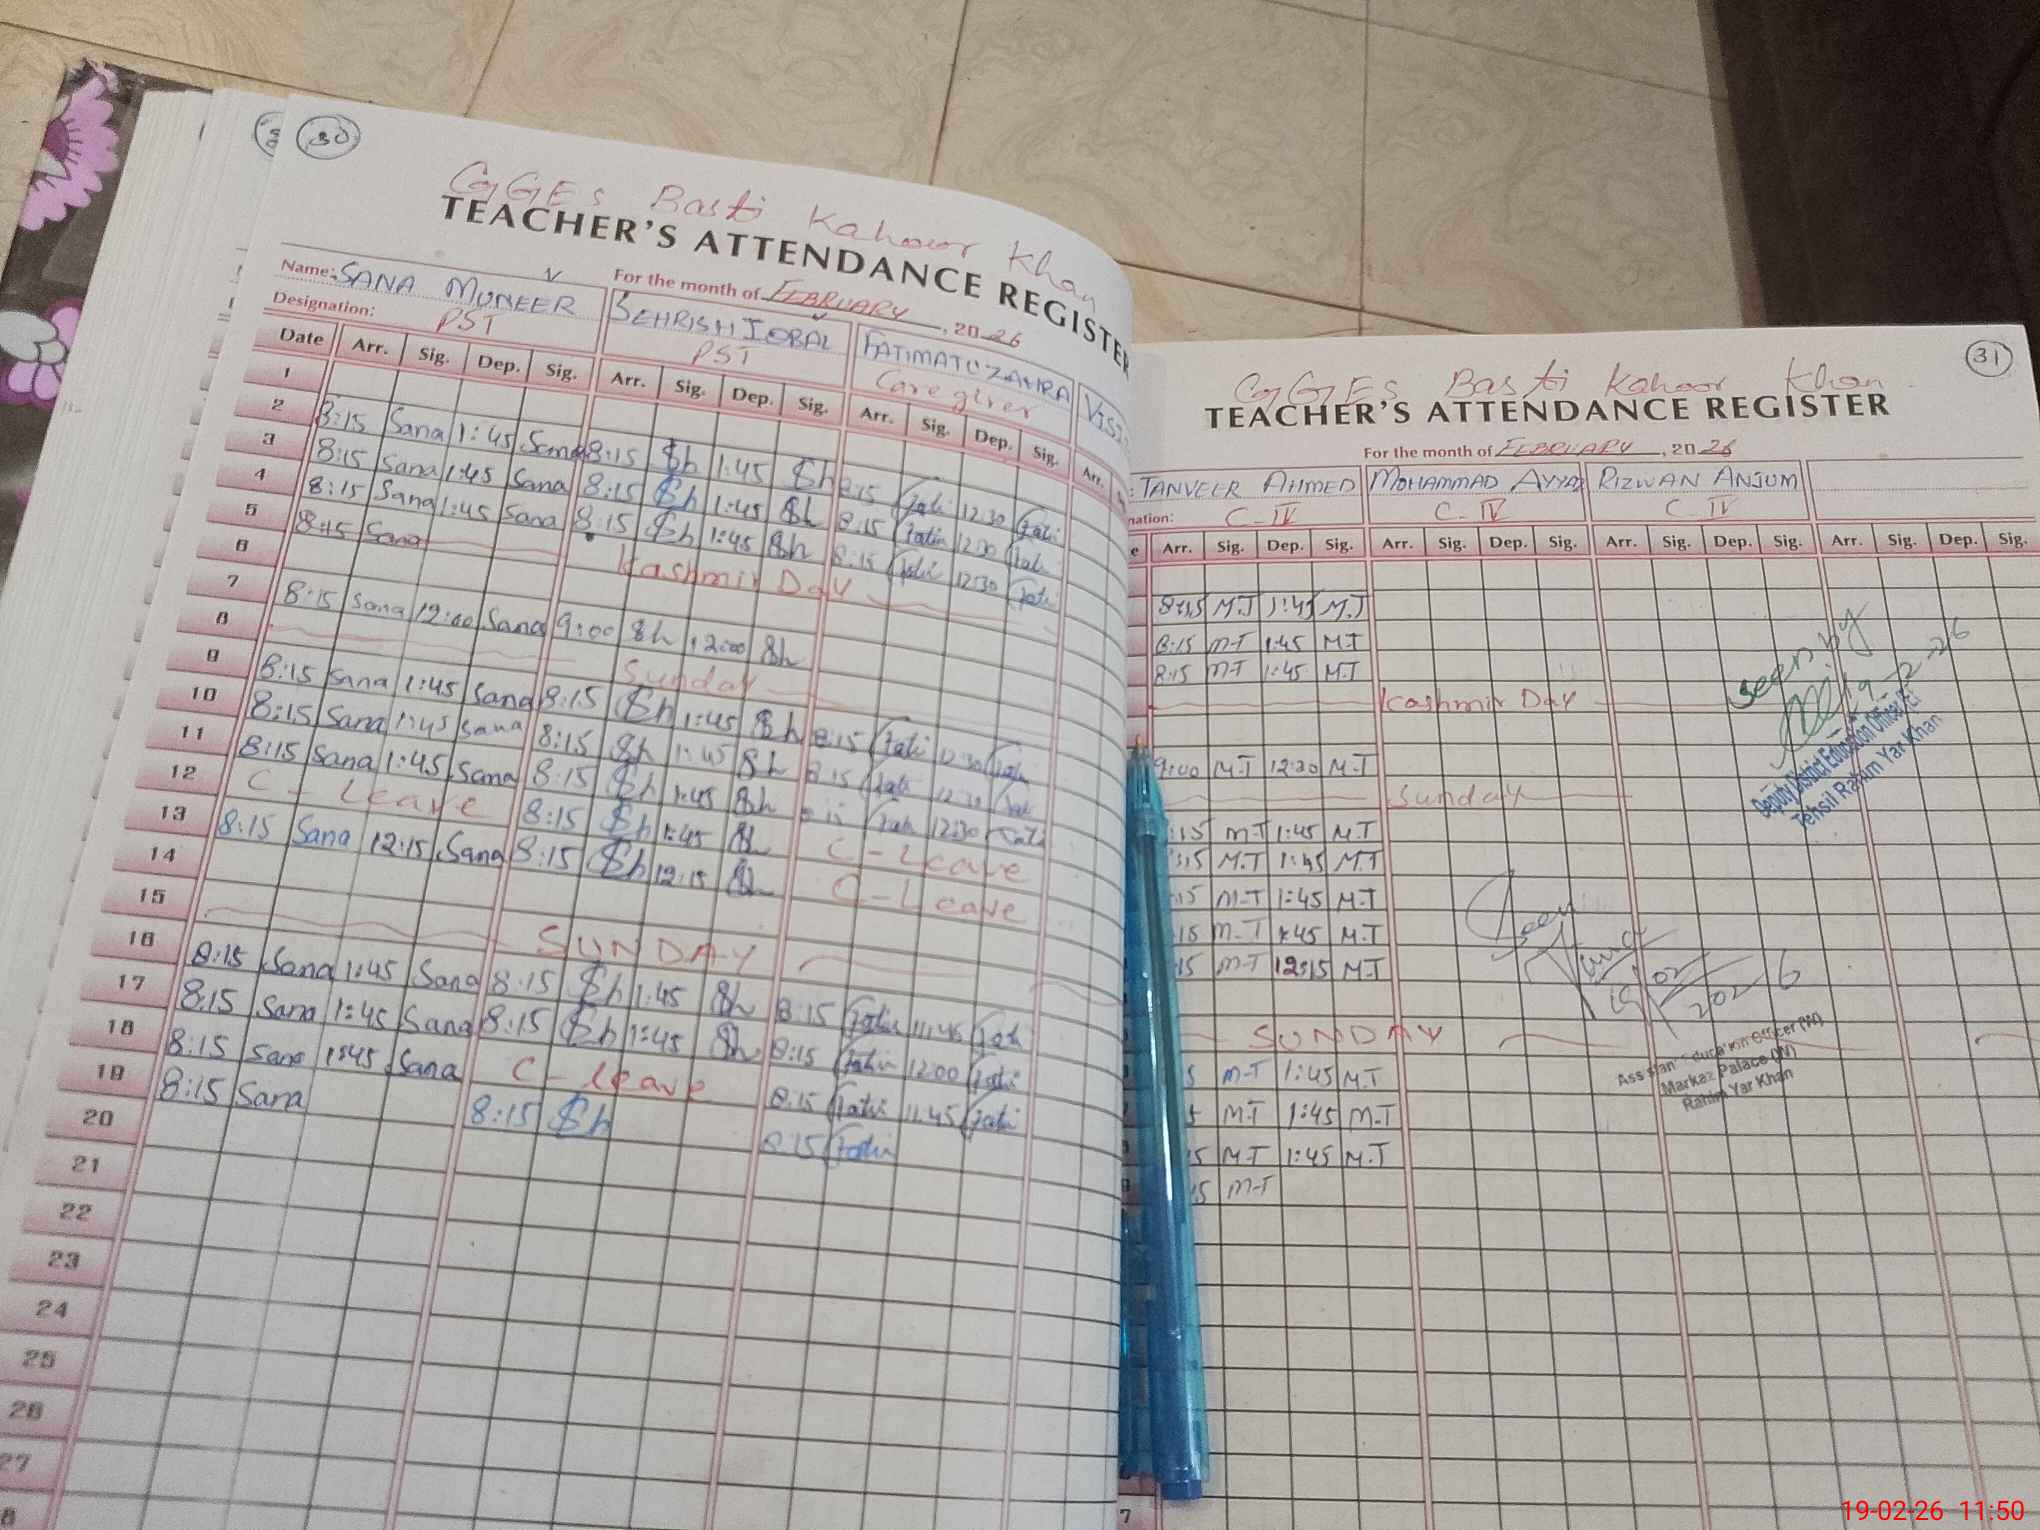 30
GGES Basti Kahoor Khan
TEACHER'S ATTENDANCE REGISTER
For the month of FEBRUARY, 2026
Name: SANA MUNEER SEHRISH IQBAL FATIMATUZAHRA
Designation: PST PST Care giver
Date Arr. Sig. Dep. Sig. Arr. Sig. Dep. Sig. Arr. Sig. Dep. Sig. Arr.
1
2 8:15 Sana 1:45 Sana 8:15 Sh 1:45 Sh 8:15 12:30
3 8:15 Sana 1:45 Sana 8:15 Sh 1:45 Sh 8:15 12:30
4 8:15 Sana 1:45 Sana 8:15 Sh 1:45 Sh 8:15 12:30
5 Sana Kashmir Day
6
7 8:15 Sana 12:00 Sana 9:00 Sh 12:00 Sh
8 Sunday
9 8:15 Sana 1:45 Sana 8:15 Sh 1:45 Sh 8:15 12:30
10 8:15 Sana 1:45 Sana 8:15 Sh 1:45 Sh 8:15 12:30
11 8:15 Sana 1:45 Sana 8:15 Sh 1:45 Sh 12:30
12 C - Leave 8:15 Sh 1:45 Sh C - Leave
13 8:15 Sana 12:15 Sana 8:15 Sh 12:15 Sh C - Leave
14
15 SUNDAY
16 8:15 Sana 1:45 Sana 8:15 Sh 1:45 Sh 8:15 11:45
17 8:15 Sana 1:45 Sana 8:15 Sh 1:45 Sh 8:15 12:00
18 8:15 Sana 1:45 Sana C - Leave 8:15 11:45
19 8:15 Sana 8:15 Sh 8:15
20
21
22
23
24
25
26
27
31
GGES Basti Kahoor Khan
TEACHER'S ATTENDANCE REGISTER
For the month of FEBRUARY, 2026
TANVEER AHMED MOHAMMAD AYYAZ RIZWAN ANJUM
nation: C-IV C-IV C-IV
e Arr. Sig. Dep. Sig. Arr. Sig. Dep. Sig. Arr. Sig. Dep. Sig. Arr. Sig. Dep. Sig.
8:15 M.T 1:45 M.T
8:15 M.T 1:45 M.T
8:15 M.T 1:45 M.T
Kashmir Day
9:00 M.T 12:30 M.T
Sunday
:15 M.T 1:45 M.T
:15 M.T 1:45 M.T
:15 M.T 1:45 M.T
15 M.T 1:45 M.T
15 M.T 12:15 M.T
SUNDAY
5 M.T 1:45 M.T
5 M.T 1:45 M.T
15 M.T 1:45 M.T
15 M.T
7
seen by
19-2-26
Deputy District Education Officer
Tehsil Rahim Yar Khan
Seen
19/02/2026
Assistant Education Officer (W)
Markaz Palace (W)
Rahim Yar Khan
19-02-26 11:50